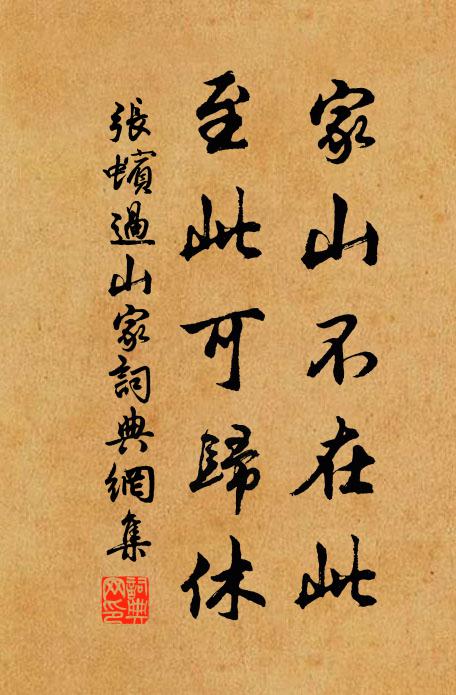 家山不在此
至此可歸休
張蠙過山家詞典網集
詞典
网印